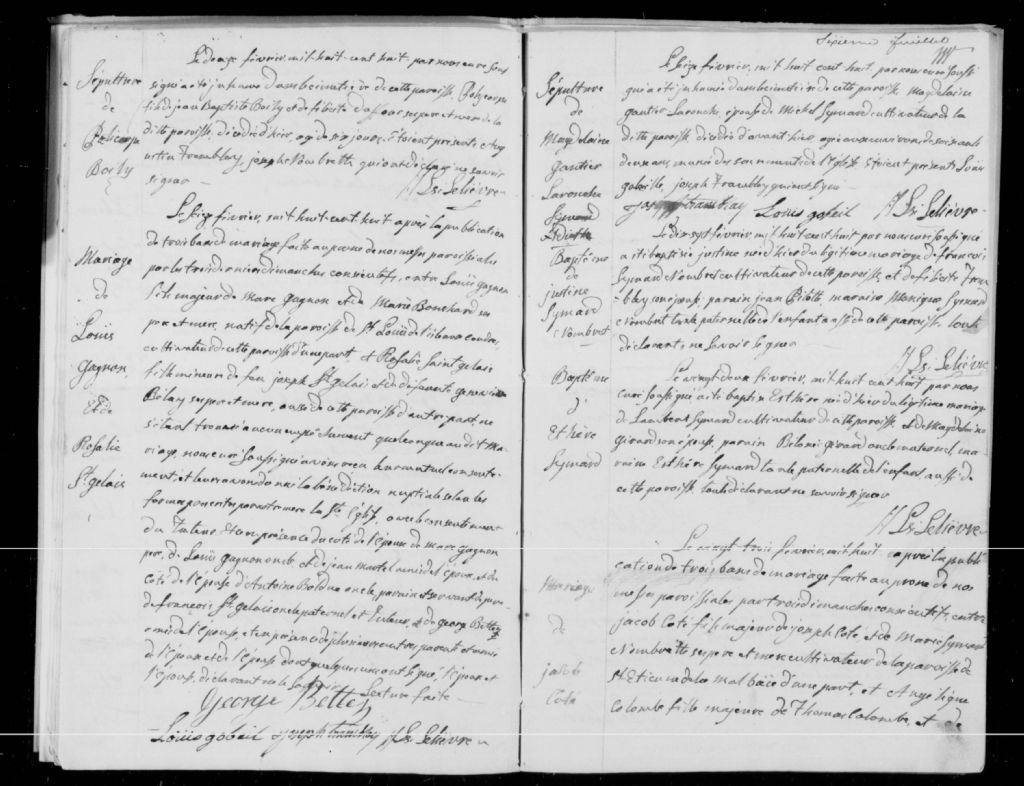 Sépulture
de
Policarpe
Boily
Le douze février, mil huit cent huit par nous curé sous
signé a été inhumé dans le cimetière de cette paroisse, Policarpe
fils de jean Baptiste Boily et de félicité ses pere et mere de la
dite paroisse, décédé d'hier, agé de dix jours, étoient presents
Tremblay, joseph qui ont déclaré ne savoir
signer
Ls. Lelièvre
Mariage
de
Loüis
Gagnon
Et de
Rosalie
St. gelais
Le seize février, mil huit cent huit après la publication
de trois bans de mariage faite au prone de nos messes paroissiales
par les trois derniers dimanches consécutifs, entre Loüis gagnon
fils majeur de Marc Gagnon et de Marie Bouchard ses
pere et mere, natif de la paroisse de St. Loüis de l'isle aux coudres,
cultivateur de cette paroisse d'une part et Rosalie Saint gelais
fille mineure de feu joseph St. gelais et de défunte geneviève
ses pere et mere, aussi de cette paroisse d'autre part, ne
s'étant trouvé aucun empêchement quelconque au dit ma-
riage, nous curé soussigné avons reçu leur mutuel consente-
ment et leur avons donné la bénédiction nuptiale selon les
formes prescrites par notre mere la Ste. Eglise, avec le consentement
du Tuteur et en présence du coté de l'époux de Marc gagnon
pere, de Loüis gagnon oncle et de jean martel ami de l'époux, et du
coté de l'épouse d'Antoine Bolduc oncle, parain et servant de pere
de françois St. gelais oncle paternel et Tuteur, et de george Bettez
ami de l'épouse, et en présence de plusieurs autres parents et amis
de l'époux et de l'épouse dont quelques uns ont signé, l'époux et
l'épouse déclarant ne le savoir Lecture faite
George Bettez
Loüis gobeil joseph tramblay Ls. Lelièvre
Sixieme feuillet
Sépulture
de
Magdelaine
Gautier
Larouche
Symard
Le seize février, mil huit cent huit, par nous curé soussi-
gné a été inhumée dans le cimetière de cette paroisse Magdelaine
gautier Larouche, épouse de Michel Symard cultivateur de la
dite paroisse décédée d'avant hier agée environ de soixante
deux ans, munie des sacrements de l'Eglise étoient présents Loüis
gobeille, joseph Tremblay qui ont signé
joseph tramblay Loüis gobeil Ls. Lelièvre
Baptême
de
justine
Symard
Lombret
Le dix sept février, mil huit cent huit par nous curé soussigné
a été baptisée justine née d'hier du légitime mariage de françois
Symard Lombret cultivateur de cette paroisse et de félicité Trem-
blay son épouse parain jean Pilote, maraine Monique Symard
Lombret tante paternelle de l'enfant aussi de cette paroisse, touts
déclarants ne savoir signer
Ls. Lelièvre
Baptême
d'
Esthère
Symard
Le vingt deux février, mil huit cent huit par nous
curé soussigné a été baptisée Esthère née d'hier du légitime mariage
de Lambert Symard cultivateur de cette paroisse et de Magdelaine
girard son épouse, parain girard oncle maternel, ma-
raine Esthère Symard tante paternelle de l'enfant, aussi de
cette paroisse, touts déclarants ne savoir signer
Ls. Lelièvre
Mariage
de
jacob
Coté
Le vingt trois février, mil huit après la publi-
cation de trois bans de mariage faite au prone de nos
messes paroissiales par trois dimanches consécutifs, entre
jacob Coté fils majeur de joseph Coté et de Marie Symard
Lombrette ses pere et mere cultivateur de la paroisse de
St. Etienne de la Malbaie d'une part, et Angélique
Colombe fille majeure de Thomas Colombe, et de